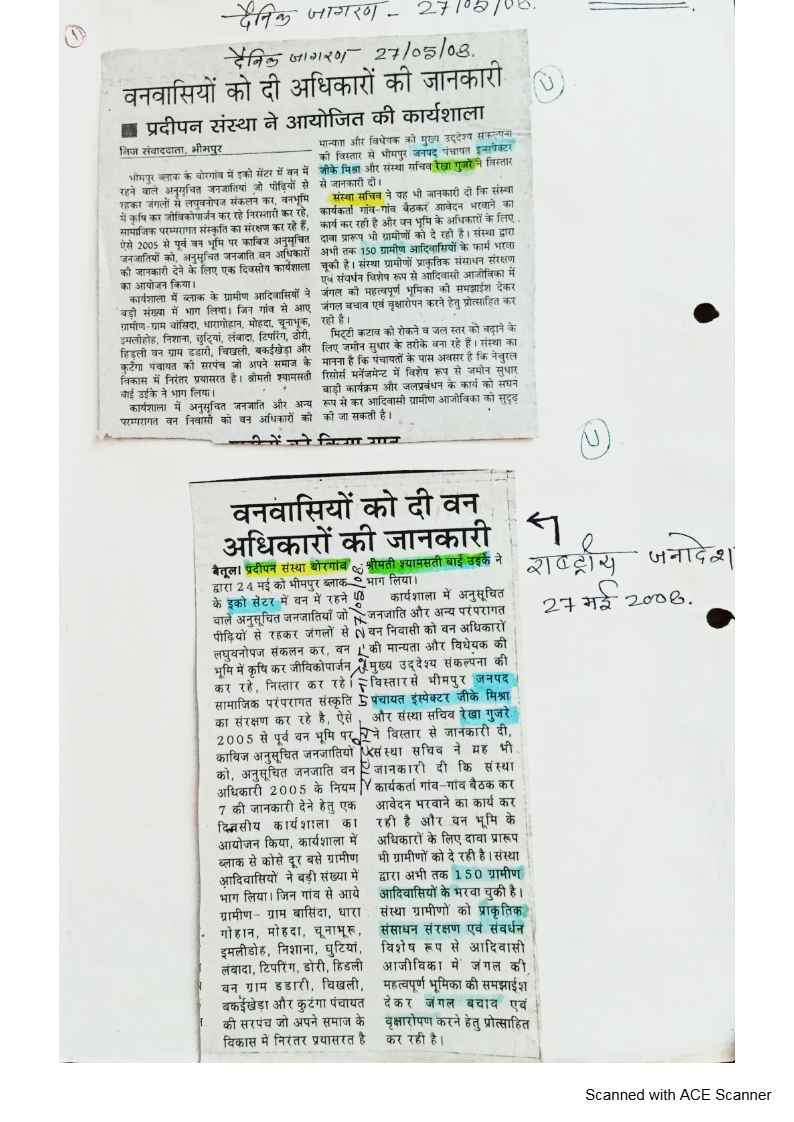 दैनिक जागरण - 27/05/08.
1
दैनिक जागरण 27/05/08.
वनवासियों को दी अधिकारों की जानकारी
प्रदीपन संस्था ने आयोजित की कार्यशाला
निज संवाददाता, भीमपुर
भीमपुर ब्लाक के बोरगांव में इको सेंटर में वन में
रहने वाले अनुसूचित जनजातियां जो पीढ़ियों से
रहकर जंगलों से लघुवनोपज संकलन कर, वनभूमि
में कृषि कर जीविकोपार्जन कर रहे निरस्तारी कर रहे,
सामाजिक परम्परागत संस्कृति का संरक्षण कर रहे हैं,
ऐसे 2005 से पूर्व वन भूमि पर काबिज अनुसूचित
जनजातियों को, अनुसूचित जनजाति वन अधिकारों
की जानकारी देने के लिए एक दिवसीय कार्यशाला
का आयोजन किया।
कार्यशाला में ब्लाक के ग्रामीण आदिवासियों ने
बड़ी संख्या में भाग लिया। जिन गांव से आए
ग्रामीण-ग्राम बासिंदा, धारागोहान, मोहदा, चूनाभूक,
इमलीहोह, निशाना, छुट्यिां, लंबादा, टिपरिंग, ठोरी,
हिड़ली वन ग्राम डडारी, चिखली, बकईखेड़ा और
कुटंगा पंचायत की सरपंच जो अपने समाज के
विकास में निरंतर प्रयासरत है। श्रीमती श्यामसती
बाई उईके ने भाग लिया।
कार्यशाला में अनुसूचित जनजाति और अन्य
परम्परागत वन निवासी को वन अधिकारों की
मान्यता और विधेयक की मुख्य उद्देश्य संकल्पना
की विस्तार से भीमपुर जनपद पंचायत इन्सपेक्टर
जीके मिश्रा और संस्था सचिव रेखा गुजरे ने विस्तार
से जानकारी दी।
संस्था सचिव ने यह भी जानकारी दी कि संस्था
कार्यकर्ता गांव-गांव बैठकर आवेदन भरवाने का
कार्य कर रही है और वन भूमि के अधिकारों के लिए
दावा प्रारूप भी ग्रामीणों को दे रही है। संस्था द्वारा
अभी तक 150 ग्रामीण आदिवासियों के फार्म भरवा
चूकी है। संस्था ग्रामीणों प्राकृतिक संसाधन संरक्षण
एवं संवर्धन विशेष रूप से आदिवासी आजीविका में
जंगल की महत्वपूर्ण भूमिका को समझाईश देकर
जंगल बचाव एवं वृक्षारोपन करने हेतु प्रोत्साहित कर
रही है।
मिट्टी कटाव को रोकने व जल स्तर को बढ़ाने के
लिए जमीन सुधार के तरीके बना रहे हैं। संस्था का
मानना है कि पंचायतों के पास अवसर है कि नेचुरल
रिसोर्स मनेंजमेन्ट में विशेष रूप से जमीन सुधार
बाड़ी कार्यक्रम और जलप्रबंधन के कार्य को सघन
रूप से कर आदिवासी ग्रामीण आजीविका को सुदृढ़
की जा सकती है।
वनवासियों को दी वन
अधिकारों की जानकारी
बैतूल। प्रदीपन संस्था बोरगांव
द्वारा 24 मई को भीमपुर ब्लाक
के इको सेटर में वन में रहने
वाले अनुसूचित जनजातियाँ जो
पीढ़ियों से रहकर जंगलों से
लघुवनोपज संकलन कर, वन
भूमि में कृषि कर जीविकोपार्जन
कर रहे, निस्तार कर रहे।
सामाजिक परंपरागत संस्कृति
का संरक्षण कर रहे है, ऐसे
2005 से पूर्व वन भूमि पर
काबिज अनुसूचित जनजातियो
को, अनुसूचित जनजाति वन
अधिकारी 2005 के नियम
7 की जानकारी देने हेतु एक
दिवसीय कार्यशाला का
आयोजन किया, कार्यशाला में
ब्लाक से कोसे दूर बसे ग्रामीण
आदिवासियों ने बड़ी संख्या में
भाग लिया। जिन गांव से आये
ग्रामीण- ग्राम बासिंदा, धारा
गोहान, मोहदा, चूनाभूरू,
इमलीडोह, निशाना, घुटियां,
लंबादा, टिपरिंग, डोरी, हिडली
वन ग्राम डडारी, चिखली,
बकईखेड़ा और कुटंगा पंचायत
की सरपंच जो अपने समाज के
विकास में निरंतर प्रयासरत है
श्रीमती श्यामसती बाई उइके ने
भाग लिया।
कार्यशाला में अनुसूचित
जनजाति और अन्य परंपरागत
वन निवासी को वन अधिकारों
की मान्यता और विधेयक की
मुख्य उद्देश्य संकल्पना की
विस्तारसे भीमपुर जनपद
पंचायत इंस्पेक्टर जीके मिश्रा
और संस्था सचिव रेखा गुजरे
ने विस्तार से जानकारी दी,
संस्था सचिव ने यह भी
जानकारी दी कि संस्था
कार्यकर्ता गांव-गांव बैठक कर
आवेदन भरवाने का कार्य कर
रही है और वन भूमि के
अधिकारों के लिए दावा प्रारूप
भी ग्रामीणों को दे रही है। संस्था
द्वारा अभी तक 150 ग्रामीण
आदिवासियों के भरवा चुकी है।
संस्था ग्रामीणों को प्राकृतिक
संसाधन संरक्षण एवं संवर्धन
विशेष रूप से आदिवासी
आजीविका में जंगल की
महत्वपूर्ण भूमिका की समझाईश
देकर जंगल बचाव एवं
वृक्षारोपण करने हेतु प्रोत्साहित
कर रही है।
राष्ट्रीय जनादेश
27 मई 2008.
Scanned with ACE Scanner